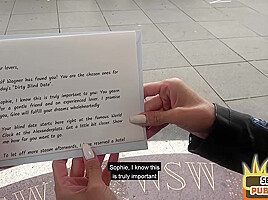 r lovers,
elf Wagner has found you! You are the chosen ones for
oday's "Dirty Blind Date".
Sophie, I know this is truly important to you: You yearn
for a gentle and
and an experienced lover. I promise
you, Gino will fulfill your dreams wholeheartedly
Your blind date starts here right at the famous World
Clock at the Alexanderplatz. Get a little bit closer. Show
me how
you want to go.
To let off more steam afterwards, I
reserved a hotel
Sophie, I know this
is truly important
SE
PUBL
WSW